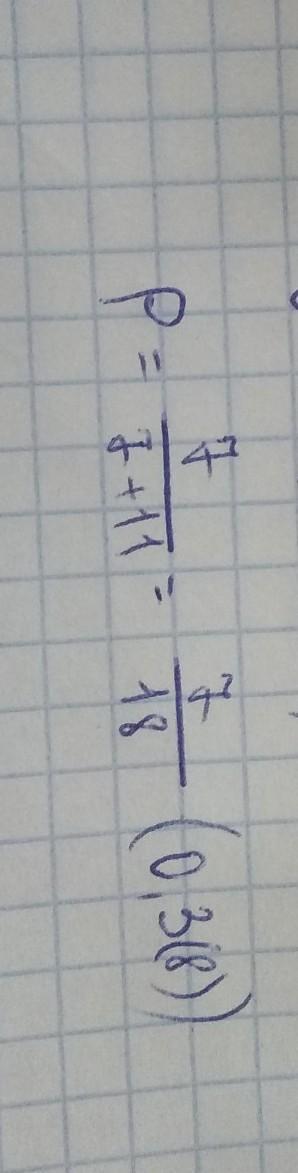 P = 7/(7+11) = 7/18 (0,3(8))